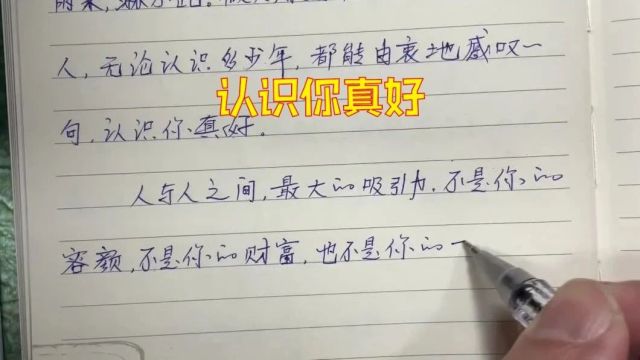 人，无论认识多少年，都能由衷地感叹一
认识你真好
句，认识你真好。
人与人之间，最大的吸引力，不是你的
容颜，不是你的财富，也不是你的一